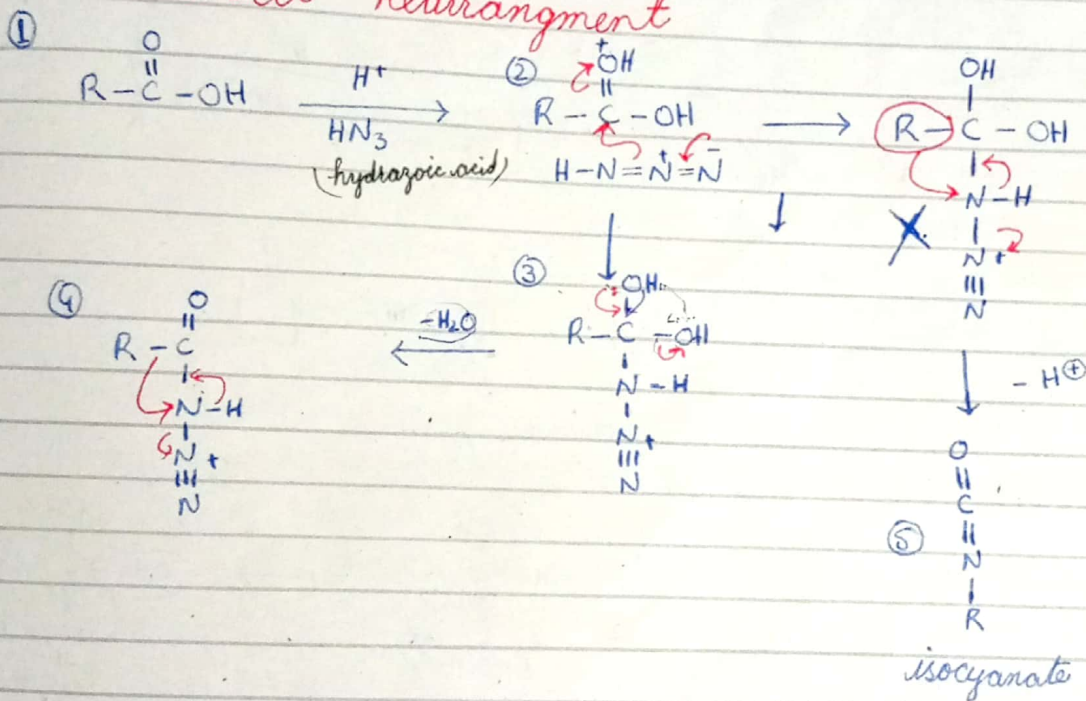 rearrangment
①
O
||
R-C-OH
H⁺
HN₃
(hydrazoic acid)
②
⁺OH
||
R-C-OH
H-N=N⁺=N⁻
OH
|
R-C-OH
|
N-H
|
N⁺
|||
N
X
-H⊕
③
:OH
|
R-C-OH
|
N-H
|
N⁺
|||
N
-H₂O
④
O
||
R-C
|
N-H
|
N⁺
|||
N
⑤
O
||
C
||
N
|
R
isocyanate